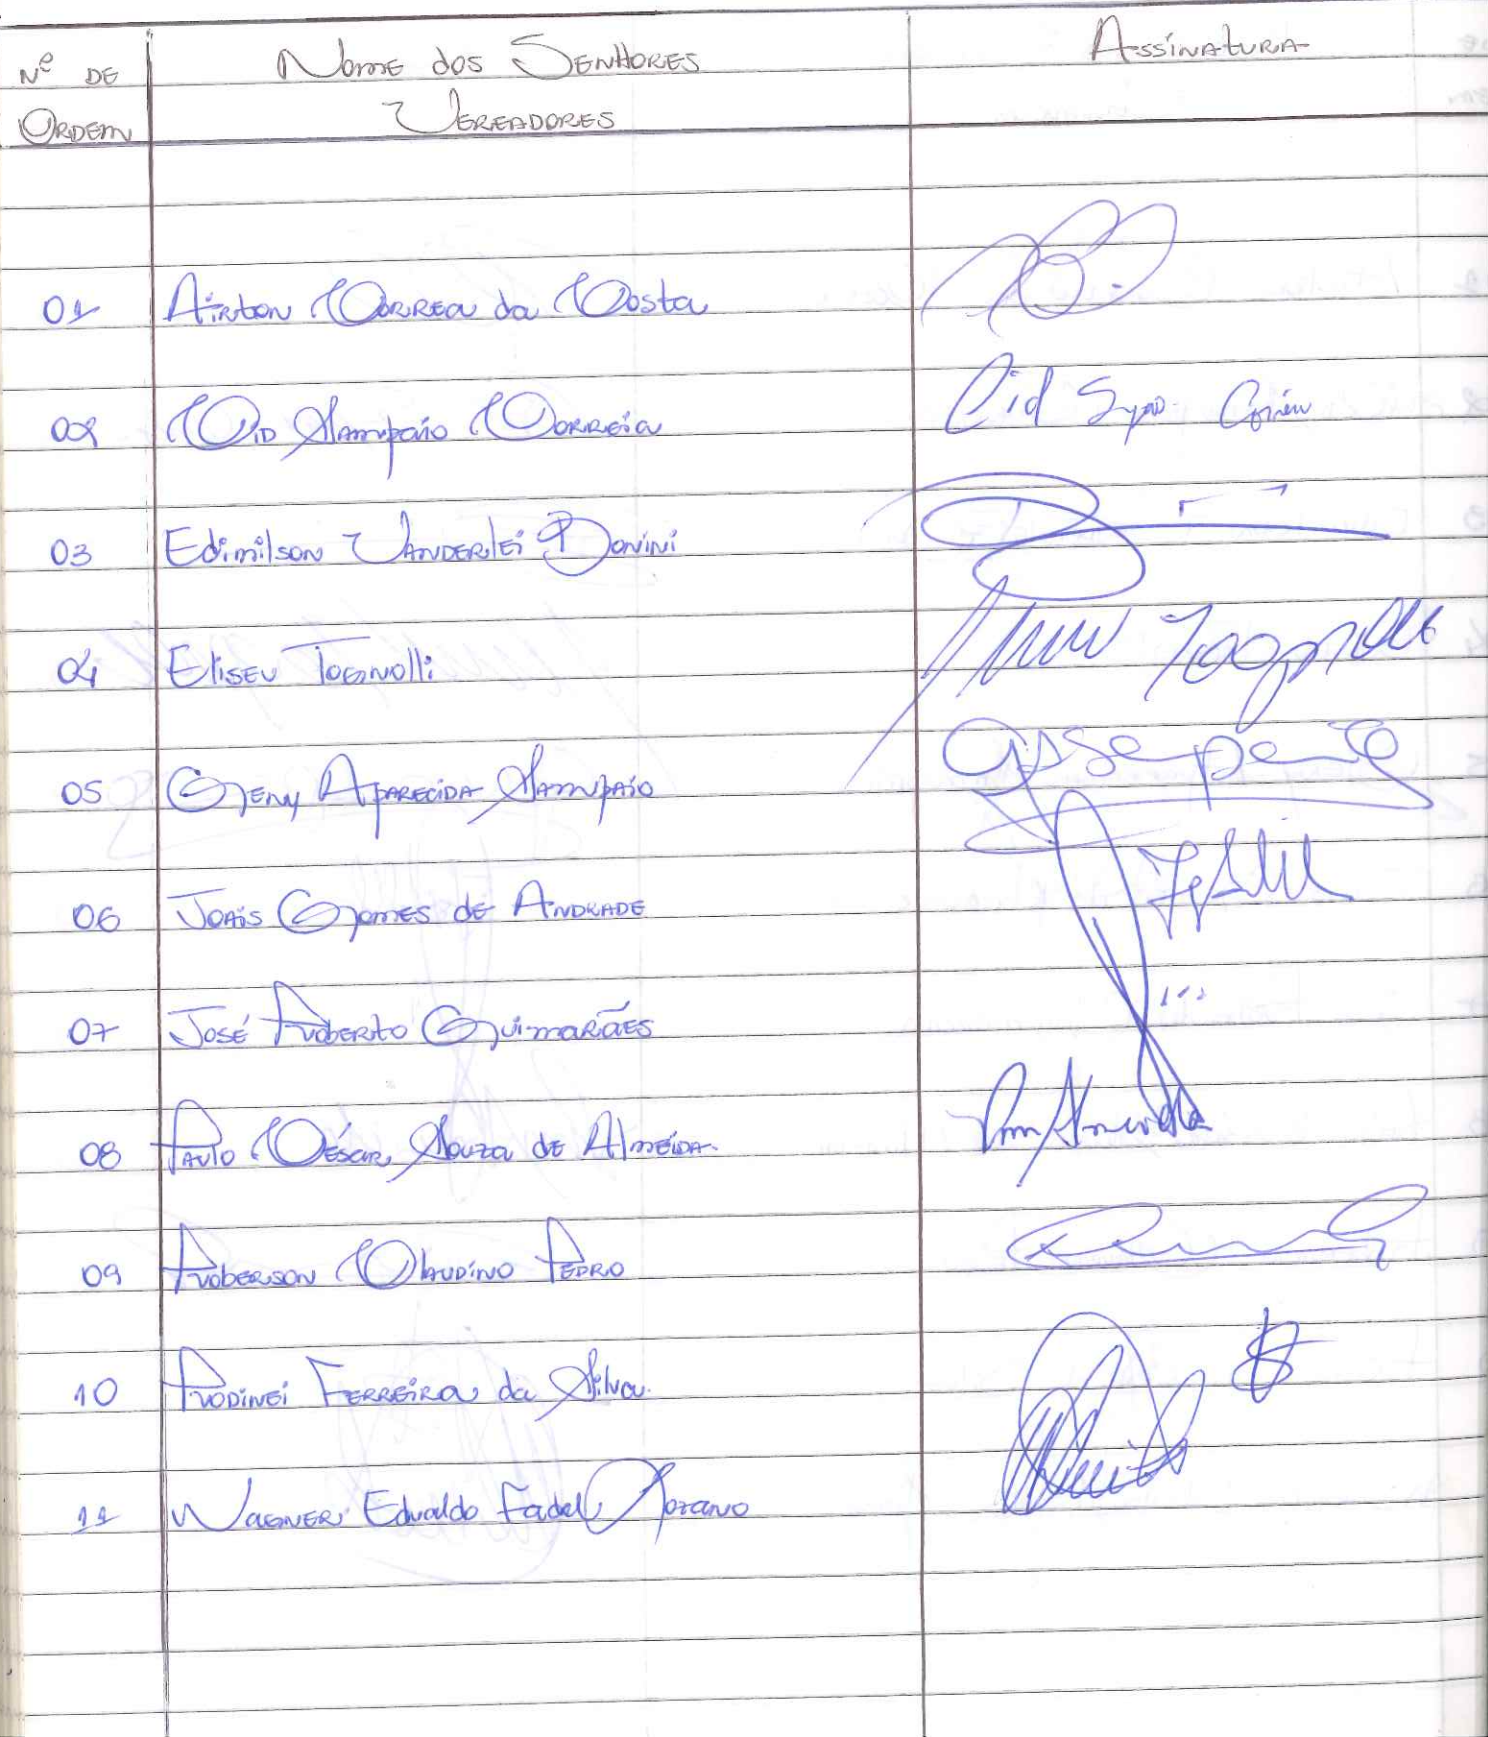 Nº DE Nome dos Senhores Assinatura
Ordem Vereadores
01 Airton Correa da Costa
02 Cid Sampaio Correia Cid
03 Edimilson Vanderlei Bonini
04 Eliseu Tognolli Tognolli
05 Geny Aparecida Sampaio
06 Joais Gomes de Andrade
07 José Roberto Guimarães
08 Paulo César Souza de Almeida Almeida
09 Roberson Claudino Pedro
10 Rodinei Ferreira da Silva
11 Wagner Edvaldo Fadel Lozano